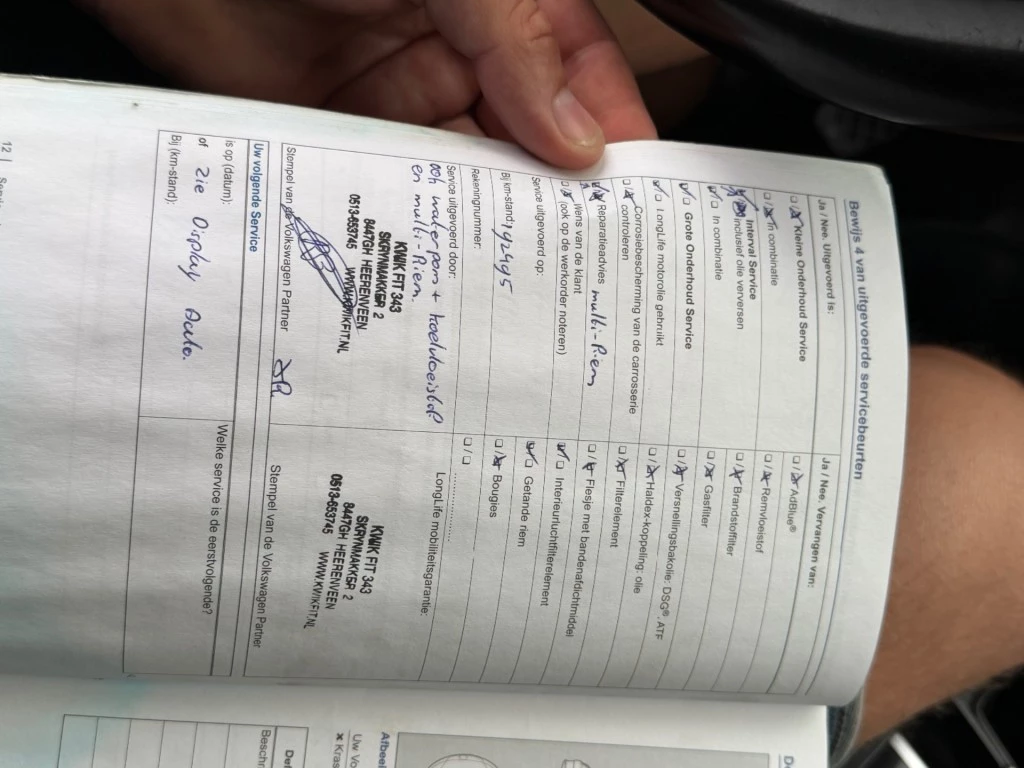 Bewijs 4 van uitgevoerde servicebeurten
Ja / Nee. Uitgevoerd is:
Kleine Onderhoud Service
In combinatie
Interval Service
inclusief olie verversen
In combinatie
Grote Onderhoud Service
LongLife motorolie gebruikt
Corrosiebescherming van de carrosserie
controleren
Reparatieadvies multi-Riem
Wens van de klant
(ook op de werkorder noteren)
Service uitgevoerd op:
Bij km-stand: 142495
Rekeningnummer:
Service uitgevoerd door:
ook waterpomp + koelvloeistof
en multi-Riem.
KWIK FIT 343
SKRYNMAKKER 2
8447GH HEERENVEEN
0513-653745 WWW.KWIKFIT.NL
Stempel van de Volkswagen Partner
Ja / Nee. Vervangen van:
AdBlue®
Remvloeistof
Brandstoffilter
Gasfilter
Versnellingsbakolie: DSG®, ATF
Haldex-koppeling: olie
Filterelement
Flesje met bandenafdichtmiddel
Interieurluchtfilterelement
Getande riem
Bougies
/ ....................
LongLife mobiliteitsgarantie:
KWIK FIT 343
SKRYNMAKKER 2
8447GH HEERENVEEN
0513-653745 WWW.KWIKFIT.NL
Stempel van de Volkswagen Partner
Uw volgende Service
is op (datum):
of zie Display Auto.
Bij (km-stand):
Welke service is de eerstvolgende?
12 |
Afbeel
Uw Vo
x Kras
Def
Beschr